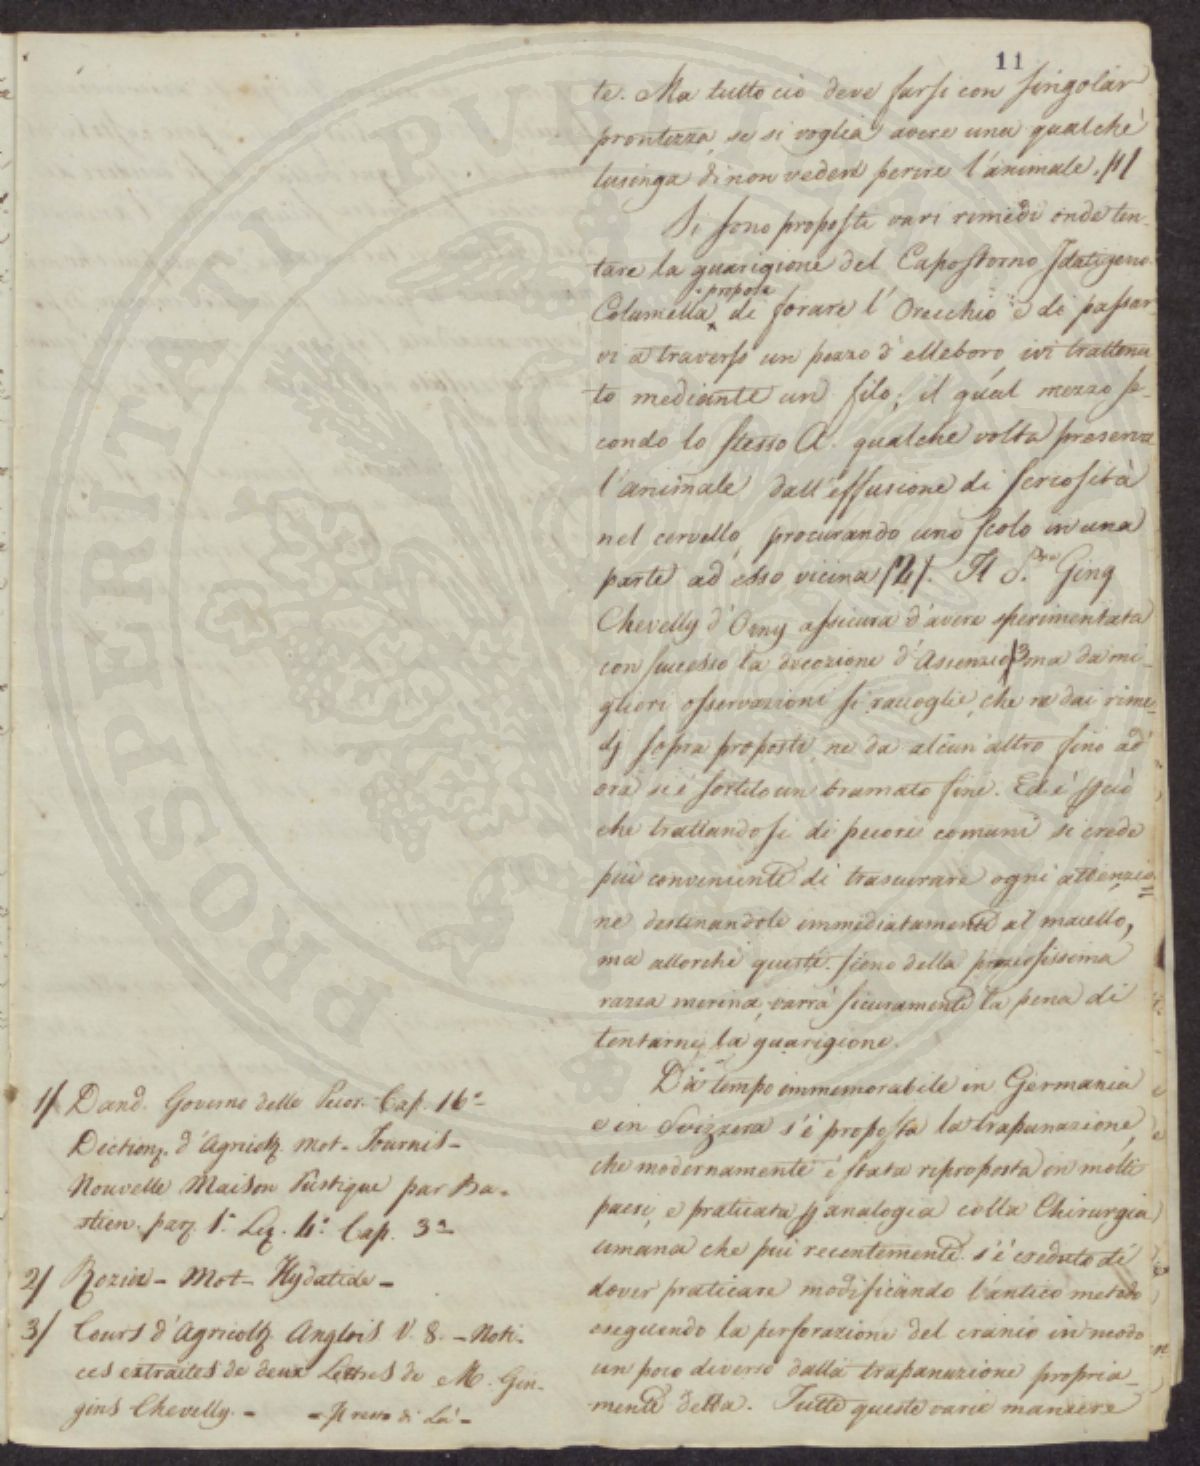 11
te. Ma tutto ciò deve farsi con singolar
prontezza, se si voglia avere una qualche
lusinga di non veder perire l'animale. /1/
Si sono proposti vari rimedi onde ten-
tare la guarigione del Capostorno Idatigeno.
Columella propose di forare l'Orecchio e di passar-
vi a traverso un pezzo d'elleboro, ivi trattenu-
to mediante un filo; il qual mezzo se-
condo lo stesso A. qualche volta preserva
l'animale dall'effusione di sieriosità
nel cervello, procurando uno scolo in una
parte ad esso vicina /2/. Il S. Ging
Chevelly d'Orny assicura d'avere sperimentata
con successo la decozione d'Assenzio /3 ma da mi-
gliori osservazioni si raccoglie, che ne dai rime-
dj sopra proposti, ne da alcun'altro fino ad
ora si è sortito un bramato fine. Ed è p ciò
che trattandosi di pecore comuni si crede
più conveniente di trascurare ogni attenzio=
ne destinandole immediatamente al macello,
ma allorchè queste sieno della preziosissima
razza merina, varrà sicuramente la pena di
tentarne la guarigione.
Da tempo immemorabile in Germania
e in Svizzera s'è proposta la trapanazione,
che modernamente è stata riproposta in molti
paesi, e praticata p analogia colla Chirurgia
umana che più recentemente s'è creduto di
dover praticare modificando l'antico metodo
eseguendo la perforazione del cranio in modo
un poco diverso dalla trapanazione propria-
mente detta. Tutte queste varie maniere
1/ Dand. Governo delle Pecor. Cap. 16°
Diction. d'Agricolt. mot- Tournis-
Nouvelle Maison Rustique par Ba-
stien. par. 1° Lez. 4° Cap. 3°
2/ Rozier- Mot- Hydatide-
3/ Cours d'Agricolt. Anglois V. 8. - Noti-
ces extraites de deux Lettres de M. Gin-
gins Chevelly. - - Il resto di Là -
PROSPERITATI PUBLICAE